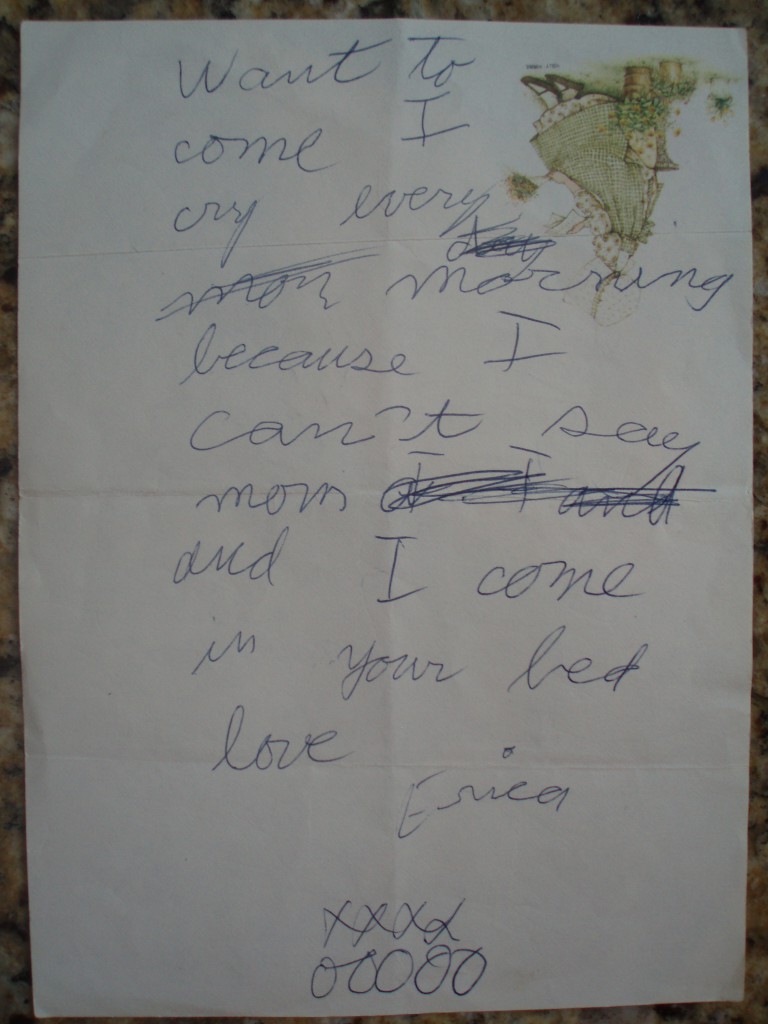 Want to
come I
cry every
day
mor morning
because I
can't say
mom I I and
and I come
in your bed
love
Erica
xxxx
ooooo